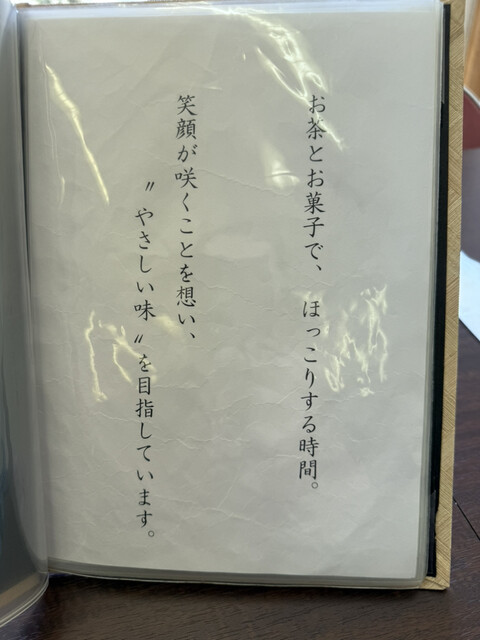 お茶とお菓子で、ほっこりする時間。
笑顔が咲くことを想い、
〃やさしい味〃を目指しています。